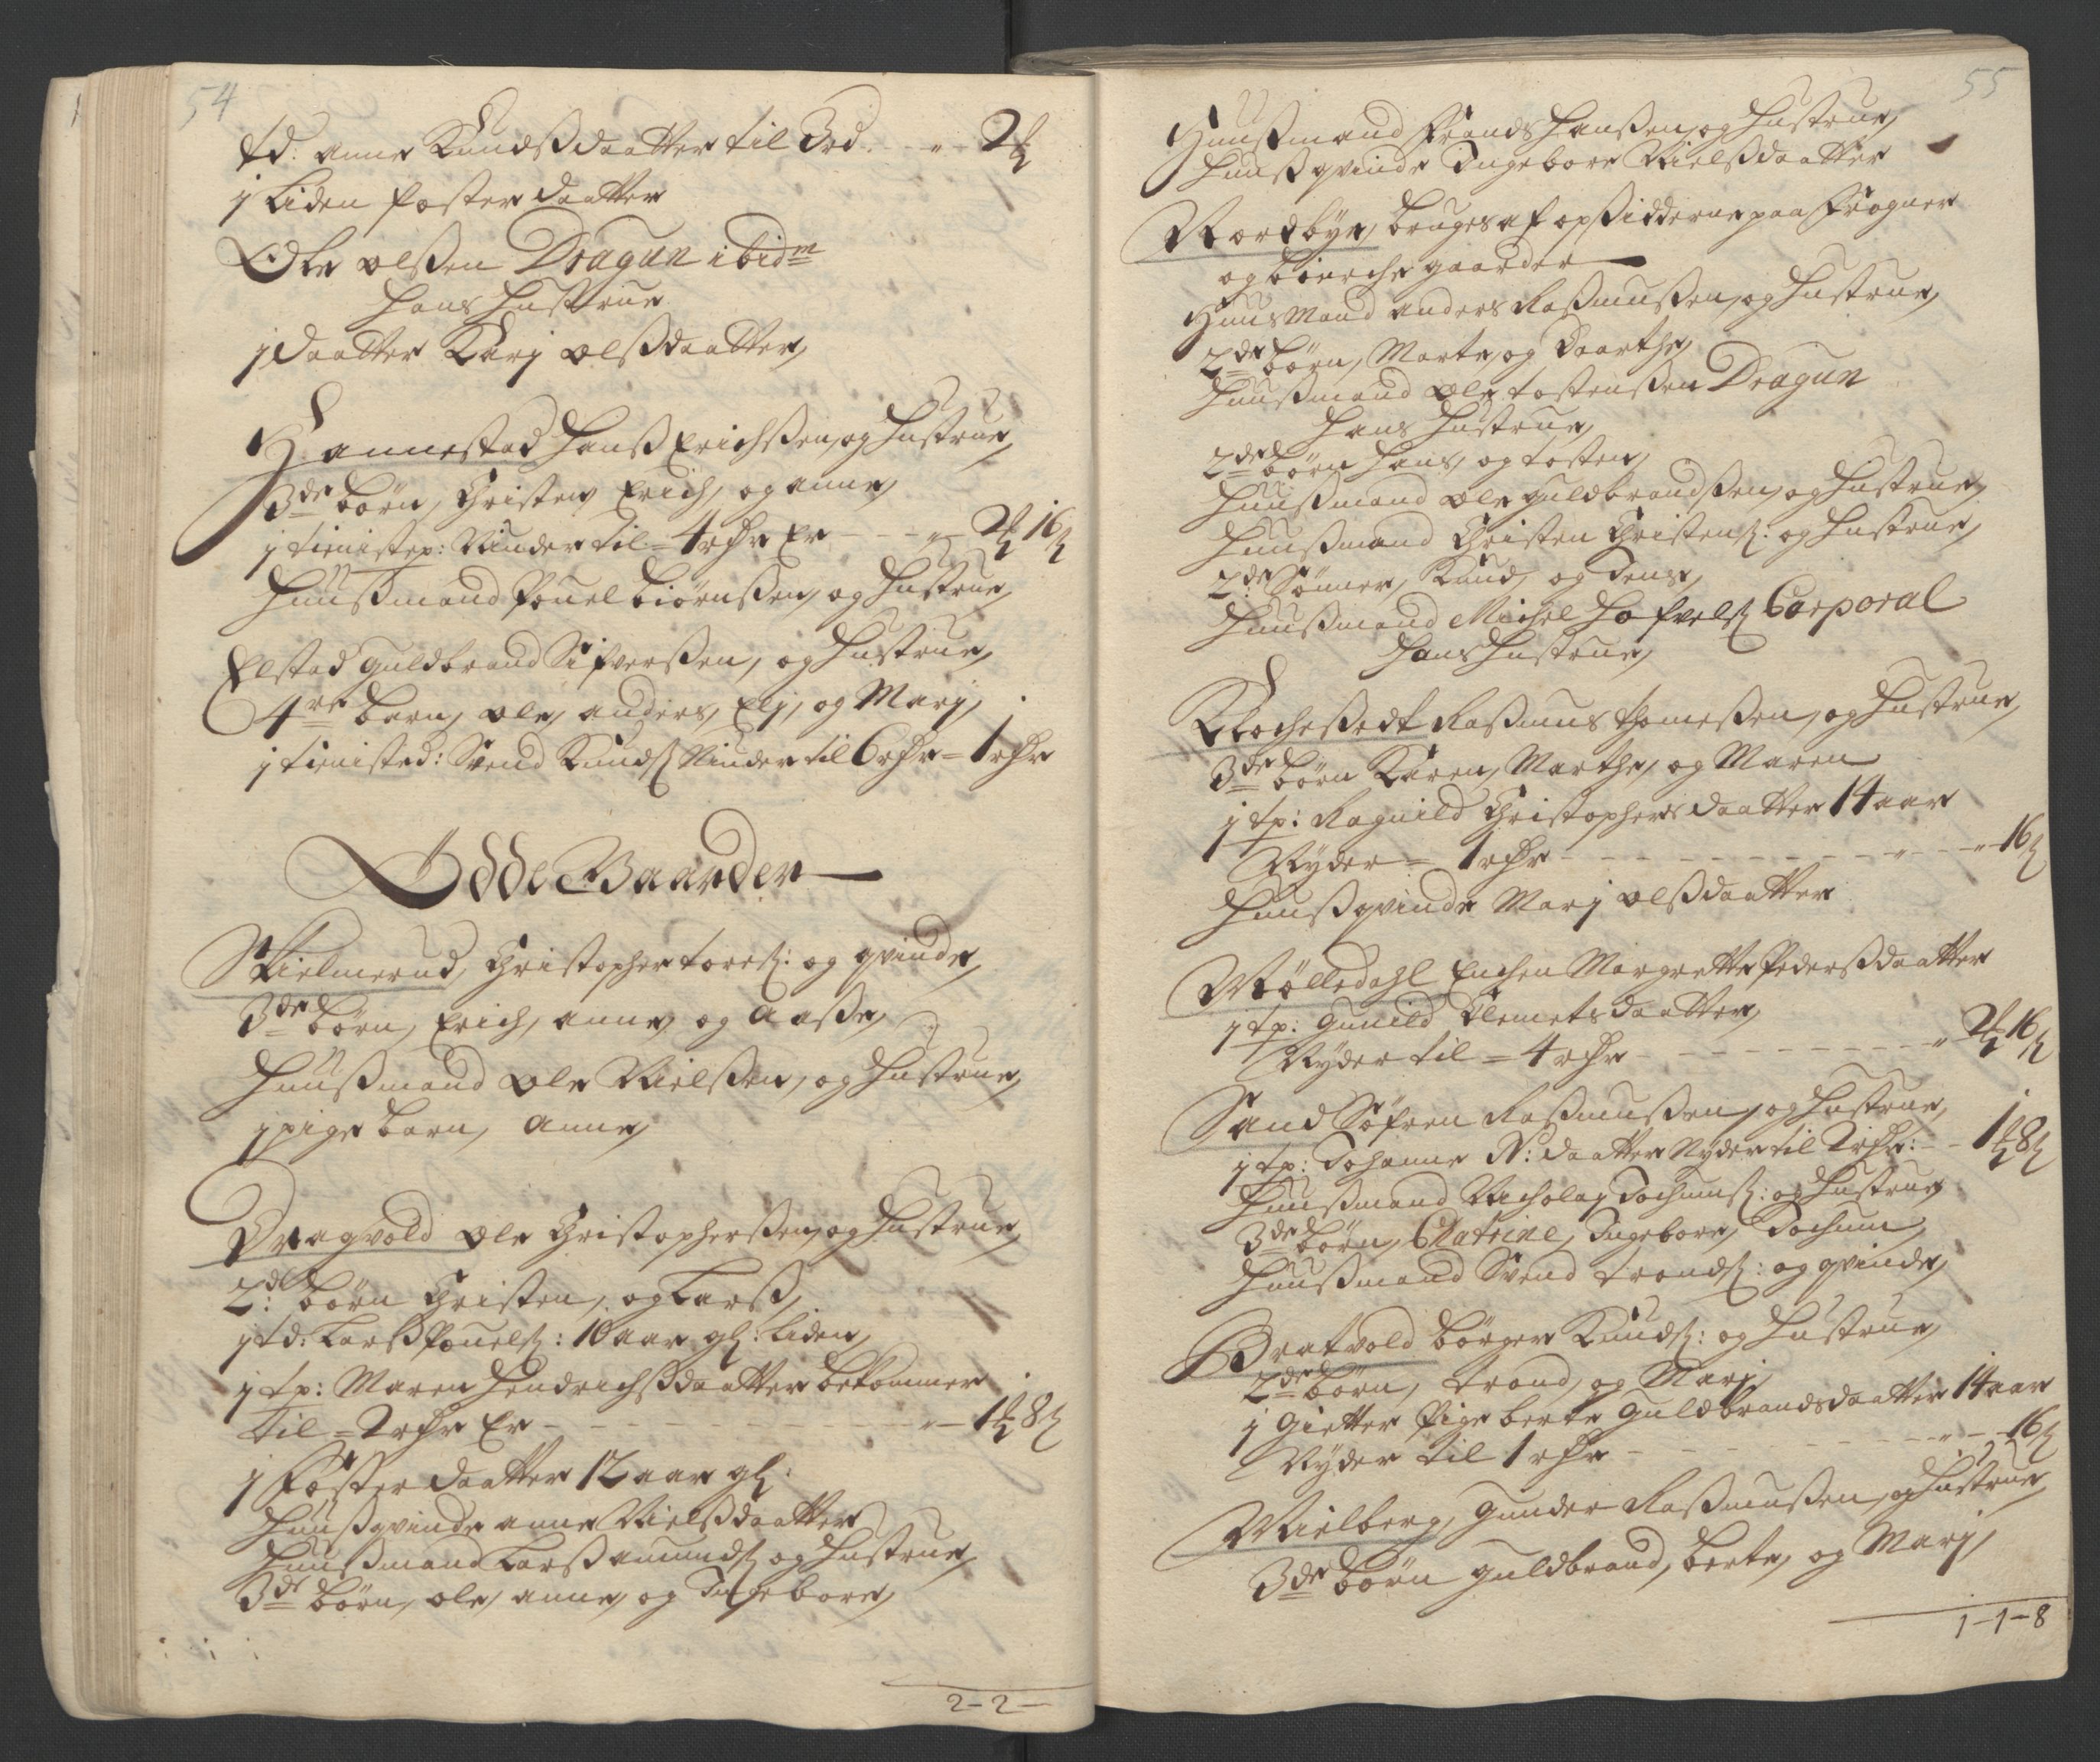 54
td: anne Knudsßdaatter til 3rd. - - " - 2 ß
j liden foster daatter
Ole olßen Dragun ibidm
hans hustrue
j daatter Karj olßdaatter,
Hannestad Hanß Erichßen, og hustrue,
3de börn, Christen Erich, og anne,
j tieniste p: Niuder til = 4 rdr Er - - - " - 2 ß 16 ß
huußmand Pouel biörnßen, og hustrue,
Elstad guldbrand Sifverßen, og hustrue,
4re børn, ole, anders, Elj, og Marj,
j tieniste d: Svend Knudß Niuder til 6 rdr = 1 rdr
Ødde Gaarder
Skielmerud, Christopher toreß: og qvinde,
3de börn, Erich, anne og Aaße,
huußmand ole Nielßen, og hustrue,
j pige barn, Anne,
Dragvold ole Christopherßen, og hustrue,
2de: börn Christen, og Larß,
j td: Larß Pouelß: 10 aar gl: liden,
j tp: Maren Hendrichßdaatter bekommer
til = 2 rdr Er - - - - - - - - " - 1 ß 8 ß
j Foster daatter 12 aar gl:
huußqvinde anne Nielßdaatter
huußmand Larß amundß og hustrue,
3de börn, ole, anne, og Ingebore,
2 - 2 -
55
Huußmand Frands Hanßen, og hustrue,
huußqvinde Ingebore Nielßdaatter
Nordbye, bruges af opßidderne paa Frogner
og kierche gaarder
Huusmand anders Raßmußen, og hustrue,
2de börn, Marte, og Daarthe,
huußmand ole tostenßen Dragun
hans hustrue,
2de börn hans, og tosten,
huußmand ole guldbrandßen, og hustrue,
huußmand Christen Christenß: og hustrue,
2de Sönner, Knud, og Jens,
huußmand Michel Hofvelß Corporal
hans hustrue,
Klocheßedt Raßmus thomeßen, og hustrue,
3de börn Karen, Marthe, og Maren
j tp: Ragnild Christophersdaatter 14 aar
Nyder = 1 rdr - - - - - - - - " - - " - 16 ß
huußqvinde Marj olßdaatter
Mölledahl Enchen Margrette Pedersßdaatter
j tp: gunild Clemetsdaatter,
Nyder til = 4 rdr - - - - - - - - " 2 ß 16 ß
Sand Söfren Raßmußen, og hustrue,
j tp: Johanne N: daatter Nyder til 2 rdr: - - 1 ß 8 ß
huußmand Nicholay Jochumß: og hustrue,
3de börn, Chatrine, Ingebore, Jochum,
huußmand Svend trondß: og qvinde,
Bratvold börger Knudß: og hustrue,
2de börn, trond, og Marj,
j gietter Pige berte guldbrandsdaatter 14 aar
Nyder til 1 rdr - - - - - - - " - - 16 ß
Mielberg, gunder Raßmußen, og hustrue,
3de börn guldbrand, berte, og Marj,
1 - 1 - 8